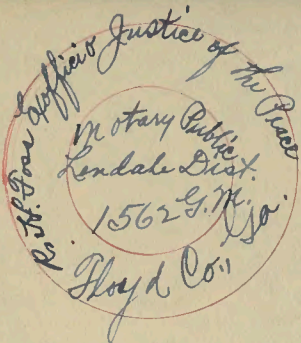 R. H. Foss Exofficio Justice of the Peace
Notary Public
Lendale Dist.
1562 G.M.
Floyd Co., Ga.